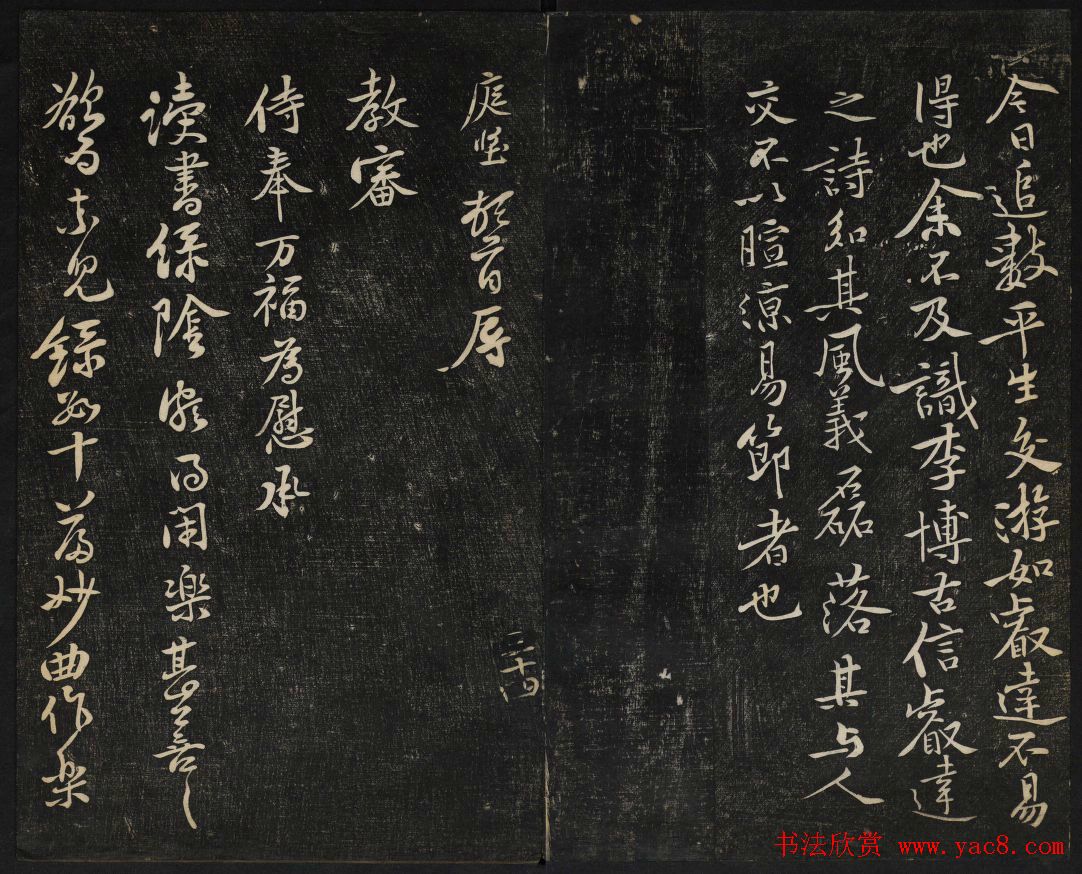 今日追數平生交游如叡達不易
得也余不及識李博古信叡達
之詩知其風義磊落其与人
交不以暄涼易節者也
庭堅頓首辱
教審
侍奉万福為慰承
读書綠陰頗得閑樂甚善〻
欲為索兒録數十篇妙曲作樂
三十四
书法欣赏 www.yac8.com